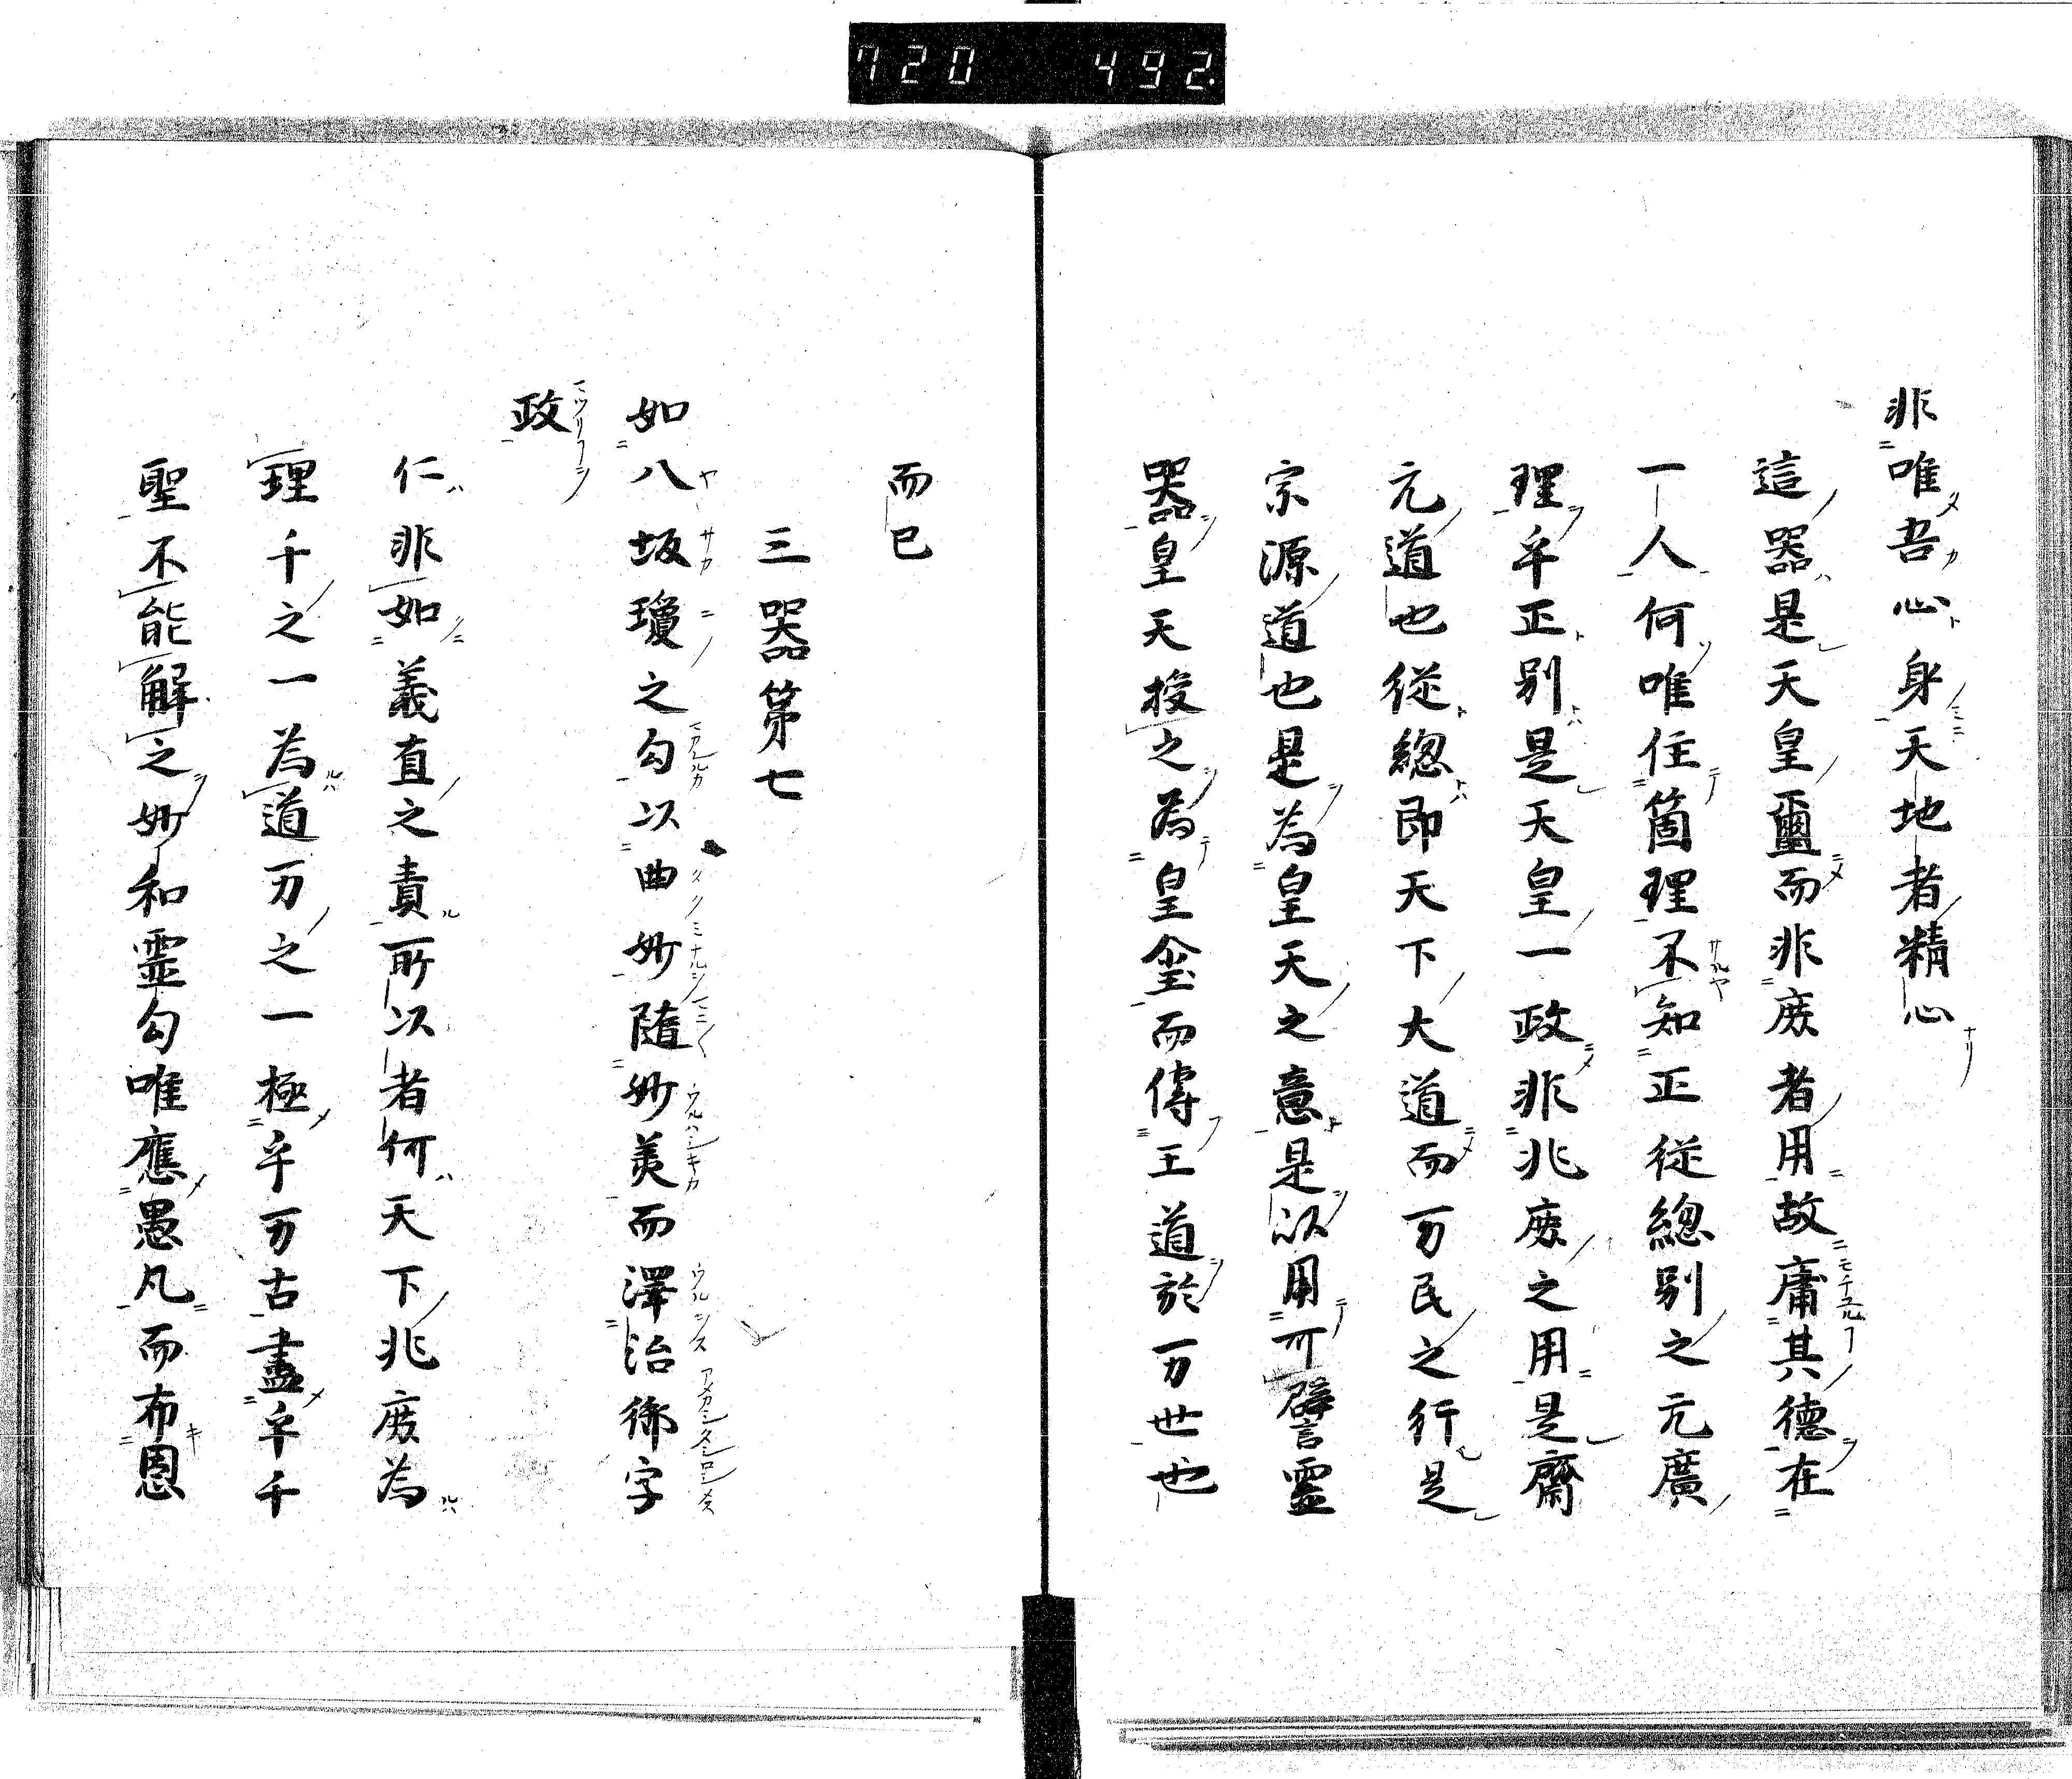 720 492.
非唯吾心身天地者精心
這器是天皇璽而非庻者用故庸其德在
一人何唯住箇理不知正從總別之元廣
理乎正別是天皇一政非兆庻之用是齋
元道也從總即天下大道而万民之行是
宗源道也是為皇天之意是以用可譬靈
器皇天授之為皇璽而傳王道於万世也
而已
三器第七
如八坂瓊之勾以曲妙隨妙美而澤治御字
政
仁非如義直之責所以者何天下兆庻為
理千之一為道万之一極乎万古盡乎千
聖不能解之妙和霊勾唯應愚凡而布恩